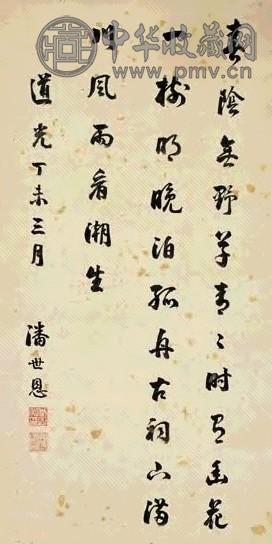 中华收藏网
www.pmv.cn
春陰垂野草青々時有幽花
一樹明晚泊孤舟古祠下滿
川風雨看潮生
道光丁未三月 潘世恩